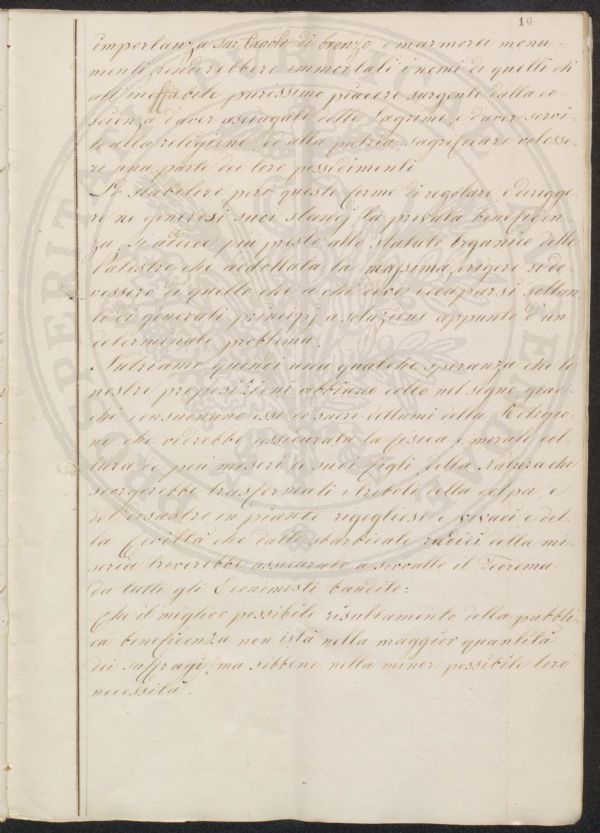 10
importanza sur tavole di bronzo o marmorei monu-
menti renderebbero immortali i nomi di quelli ch
all'ineffabile purissimo piacere surgente dalla co-
scienza d'aver asciugati delle lagrime, e d'aver servi-
to alla religione ed alla patria sagrificare volesse-
ro una parte dei loro possedimenti
Lo stabilire però queste forme di regolare e dirigge-
re ne generosi suoi slancj la privata beneficen-
za si addice più presto allo Statuto Organico delle
che addottata la massima erigere si do-
vessero di quello che a chi deve occuparsi soltan-
to di generali principj a soluzione appunto d'un
determinato problema.
Nutriamo quindi una qualche speranza che le
nostre proposizioni abbiano colto nel segno giac-
chè consuonano esse co' sacri dettami della Religio-
ne che vedrebbe assicurata la fisica e morale col-
tura de più miseri de suoi figli, della Natura che
scorgerebbe trasformati i triboli della colpa, e
del disastro in piante rigogliose e vivaci e del-
la Civiltà che dalle sbarbicate radici della mi-
seria troverebbe assicurato a socollo il Teorema
da tutti gli Economisti bandito:
Che il miglior possibile risultamento della pubbli-
ca beneficenza non istà nella maggior quantità
dei suffragi, ma sibbene nella minor possibile loro
necessità.
PROSPERITATI